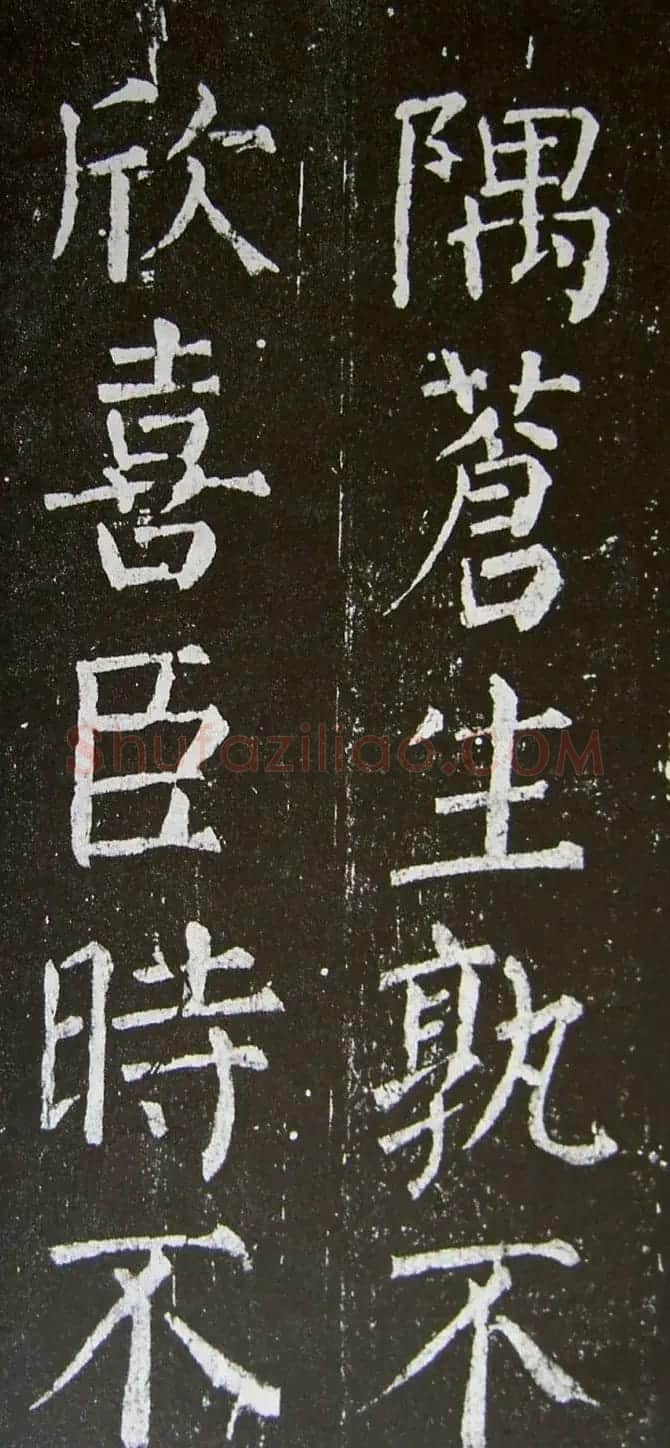 隅蒼生孰不
欣喜臣時不
Shufaziliao.COM